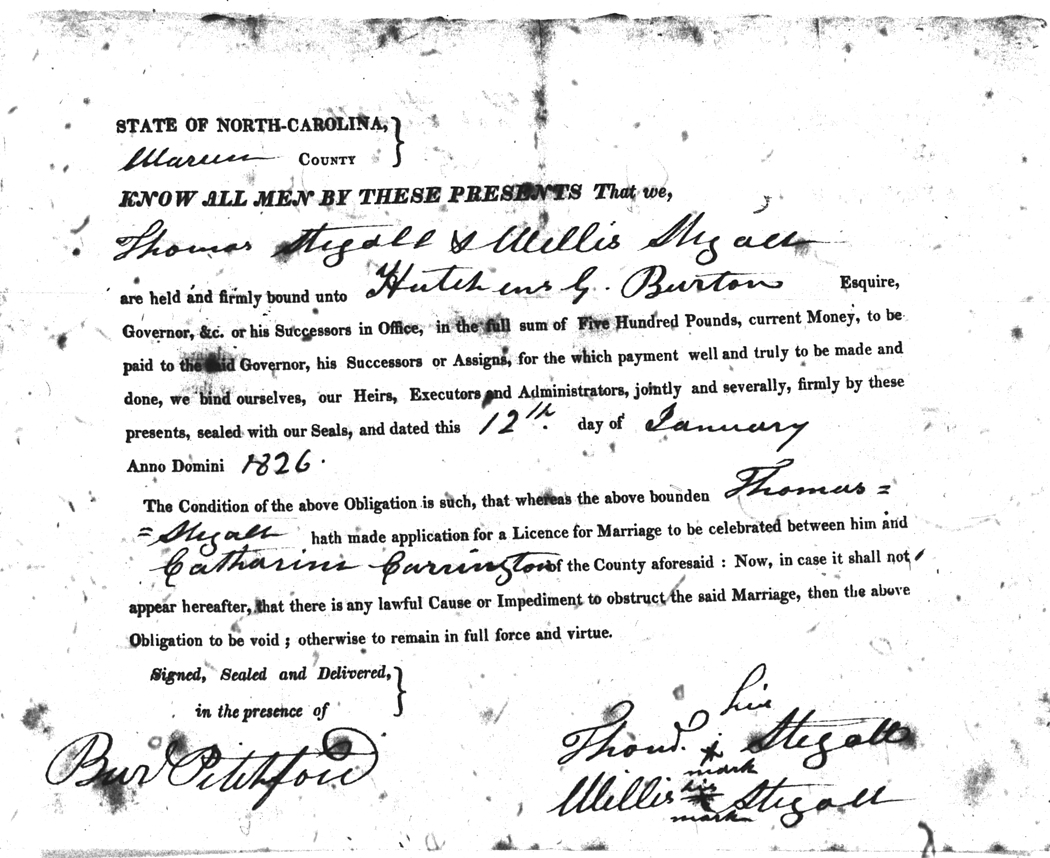 STATE OF NORTH-CAROLINA,
Warren COUNTY
KNOW ALL MEN BY THESE PRESENTS That we,
Thomas Stegall & Willis Stegall
are held and firmly bound unto Hutchens G. Burton Esquire,
Governor, &c. or his Successors in Office, in the full sum of Five Hundred Pounds, current Money, to be
paid to the said Governor, his Successors or Assigns, for the which payment well and truly to be made and
done, we bind ourselves, our Heirs, Executors and Administrators, jointly and severally, firmly by these
presents, sealed with our Seals, and dated this 12th. day of January
Anno Domini 1826.
The Condition of the above Obligation is such, that whereas the above bounden Thomas =
= Stegall hath made application for a Licence for Marriage to be celebrated between him and
Catharine Carrington of the County aforesaid : Now, in case it shall not
appear hereafter, that there is any lawful Cause or Impediment to obstruct the said Marriage, then the above
Obligation to be void ; otherwise to remain in full force and virtue.
Signed, Sealed and Delivered,
in the presence of
his
Thos. Stegall
mark
Bur Pitchford
his
Willis Stegall
mark